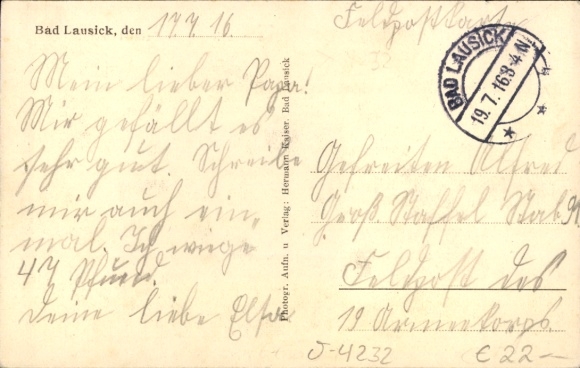 Bad Lausick, den 17.7.16
Mein lieber Papa!
Mir gefällt es
sehr gut. Schreibe
mir auch ein-
mal. Ich wiege
47 Pfund.
Deine liebe Elsa
Photogr. Aufn. u Verlag: Hermann Kaiser, Bad Lausick
Feldpostkarte
32
BAD LAUSICK
19.7.16.3-4.N
Gefreiten Alfred
Groß Staffel Stab
Feldpost des
19 Armeekorps.
J-4232
€22—